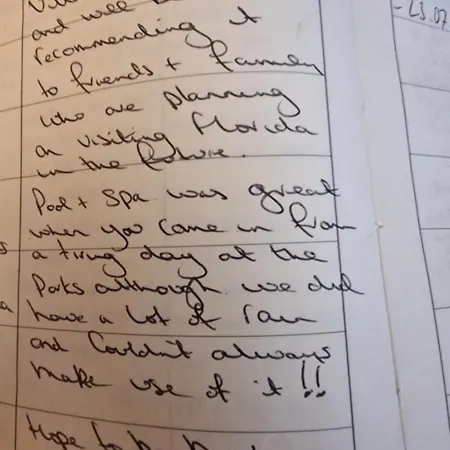 and will
recommending it
to friends + family
who are planning
on visiting Florida
in the future.
Pool + Spa was great
when you came in from
a tiring day at the
Parks although we did
have a lot of rain
and couldn't always
make use of it !!
Hope to
- 23.07
s
a